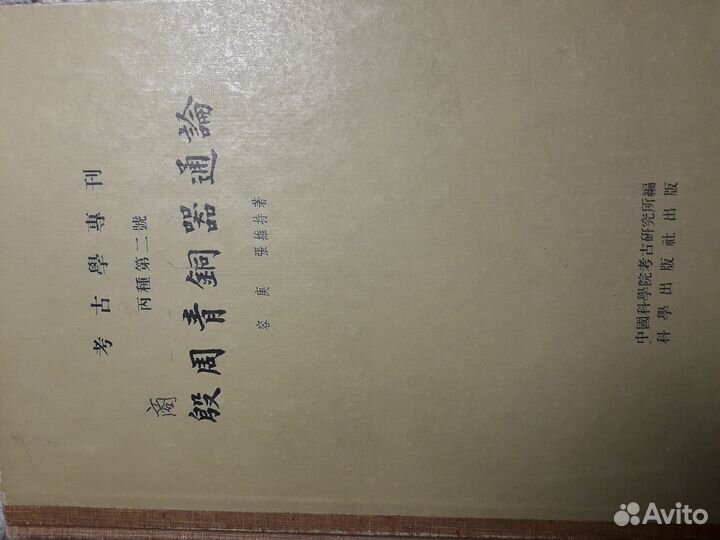 考古學專刊
丙種第二號
商
殷周青銅器通論
容庚 張維持著
中國科學院考古研究所編
科學出版社出版
Avito